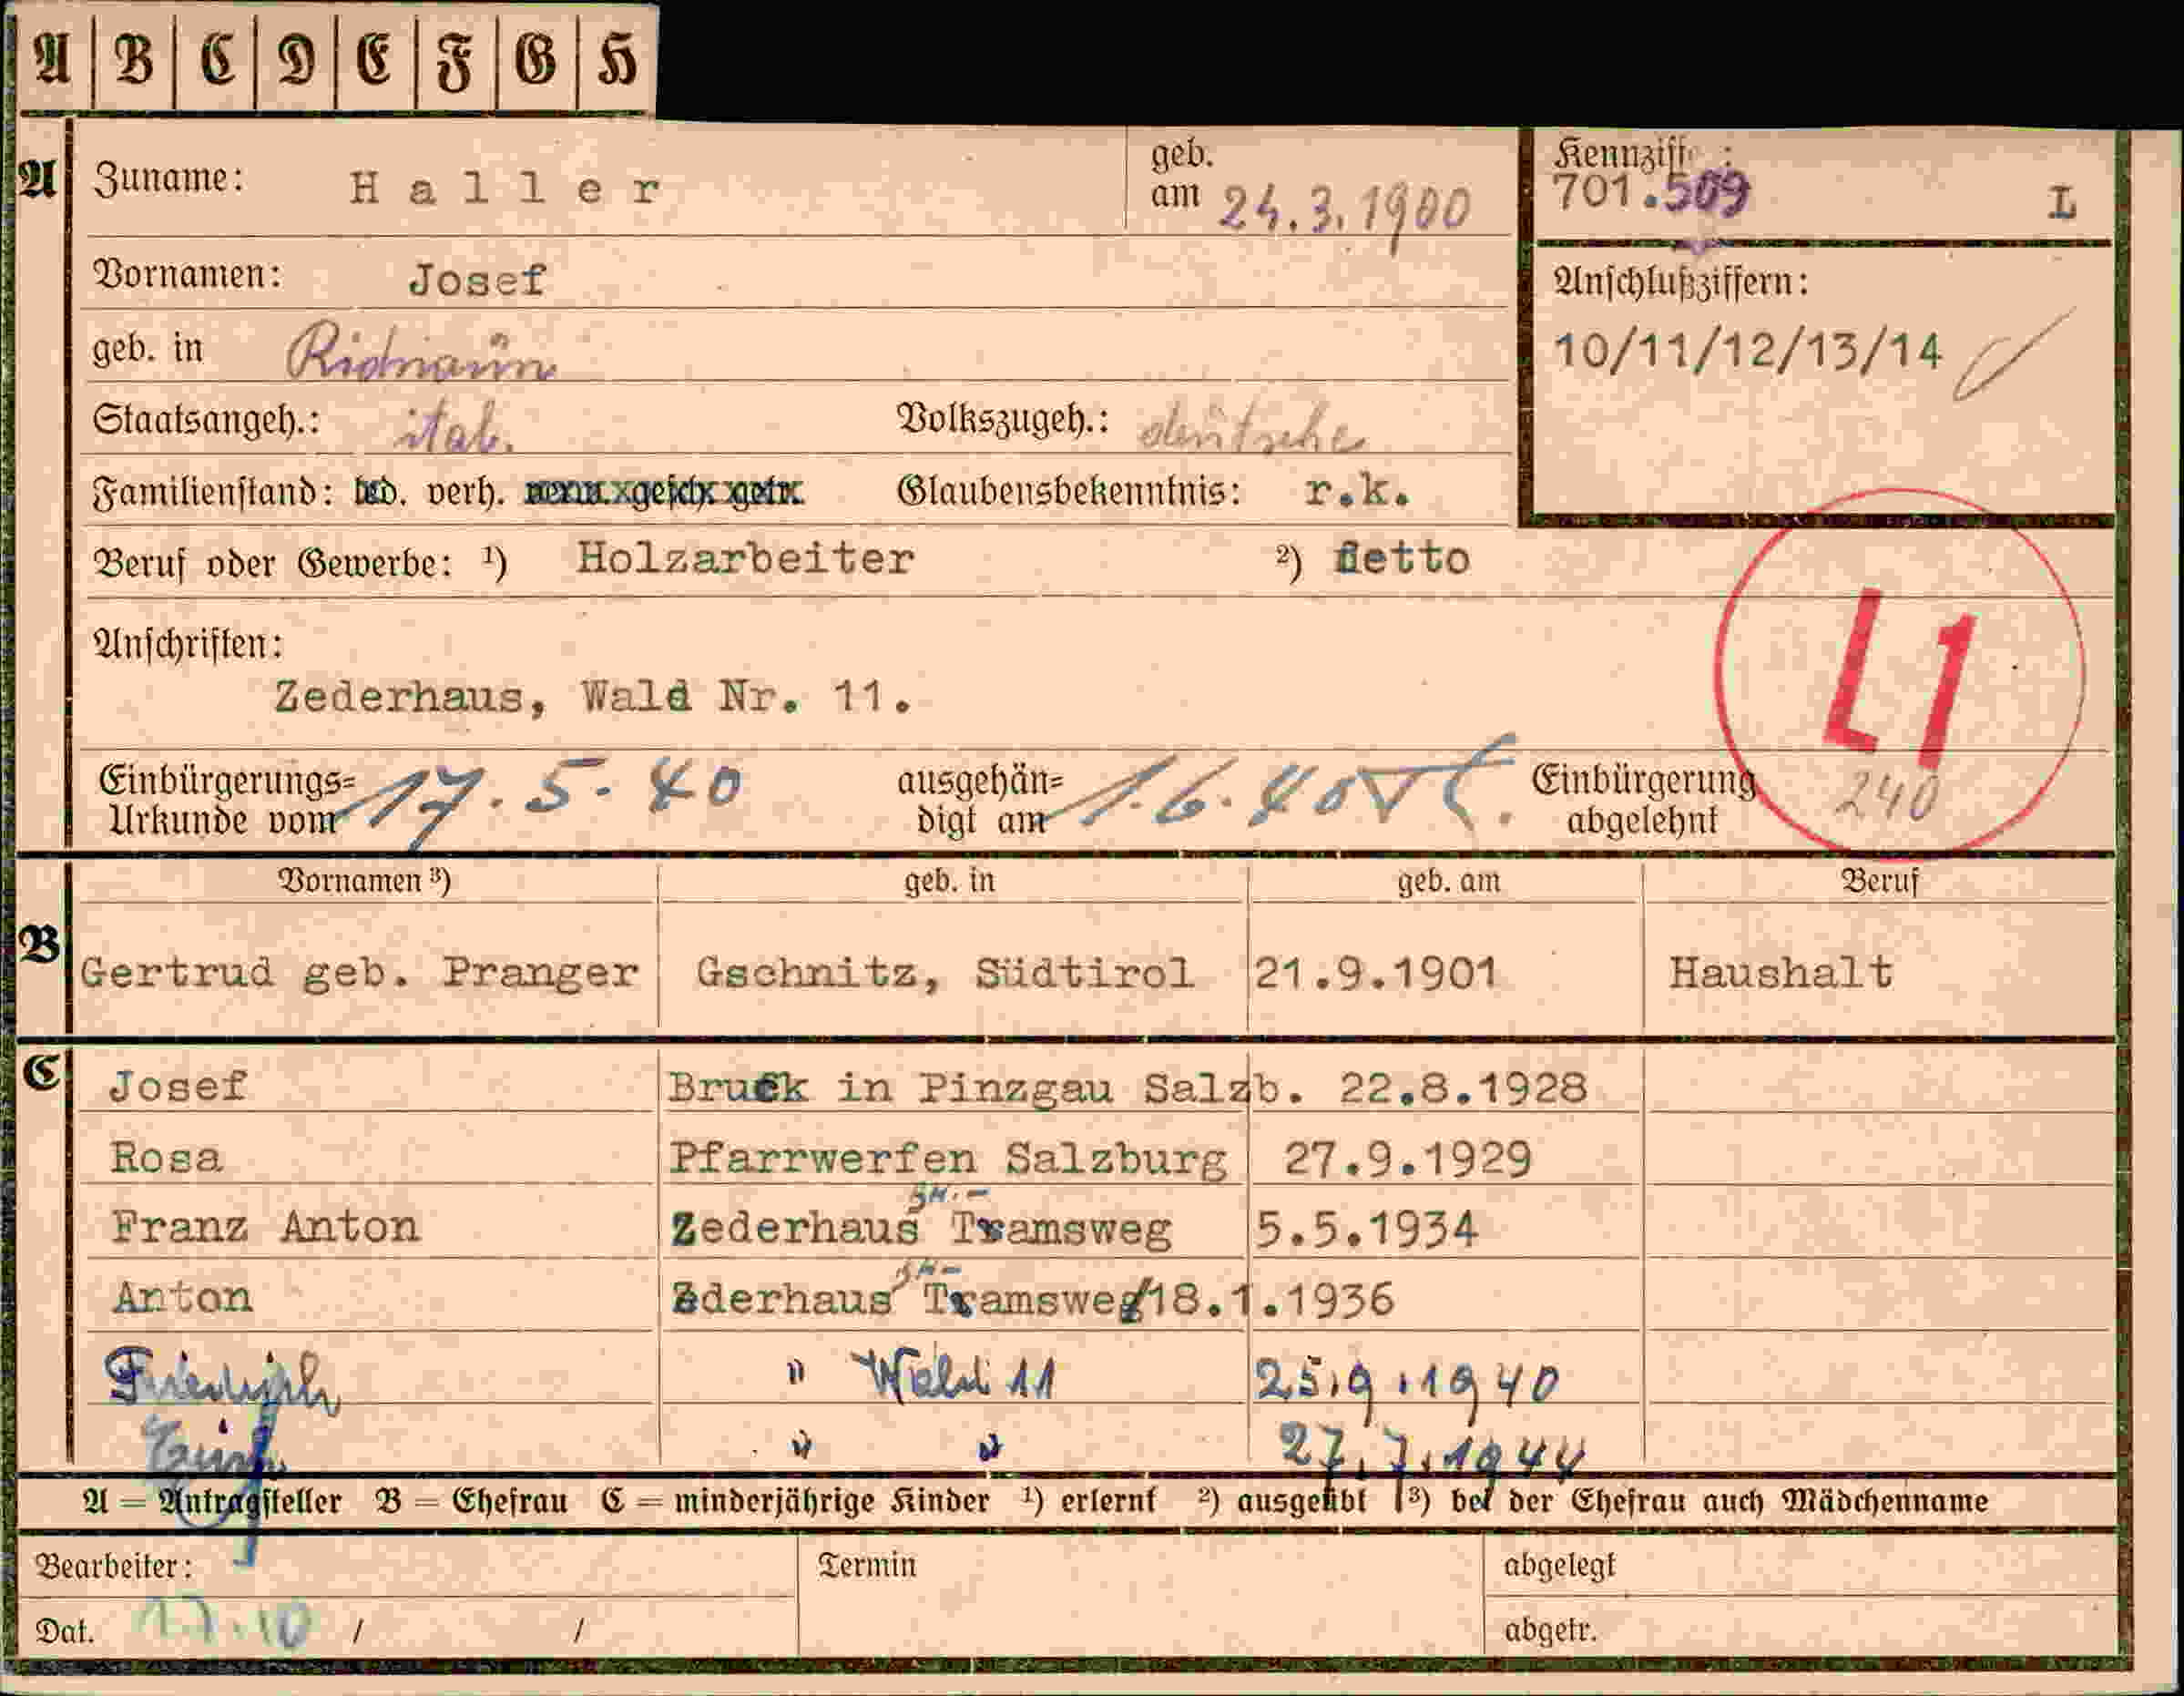 A B C D E F G H
A
Zuname: Haller
geb. am 24.3.1900
Kennziff :
701.509 L
Vornamen: Josef
Anschlußziffern:
10/11/12/13/14
geb. in Ridnaun
Staatsangeh.: ital. Volkszugeh.: deutsche
Familienstand: led. verh. verw. gesch. getr. Glaubensbekenntnis: r.k.
Beruf oder Gewerbe: ¹) Holzarbeiter ²) detto
Anschriften:
Zederhaus, Wald Nr. 11.
L1
240
Einbürgerungs=
Urkunde vom 17.5.40
ausgehän=
digt am 1.6.40
Einbürgerung
abgelehnt
Vornamen ³) geb. in geb. am Beruf
B
Gertrud geb. Pranger Gschnitz, Südtirol 21.9.1901 Haushalt
C
Josef Bruck in Pinzgau Salzb. 22.8.1928
Rosa Pfarrwerfen Salzburg 27.9.1929
Franz Anton Zederhaus Tamsweg 5.5.1934
Anton Zderhaus Tamsweg 18.1.1936
Friedrich " Wald 11 25.9.1940
" " 27.7.1944
A = Antragsteller B = Ehefrau C = minderjährige Kinder ¹) erlernt ²) ausgeübt ³) bei der Ehefrau auch Mädchenname
Bearbeiter: Termin abgelegt
Dat. 17.10 / / abgetr.